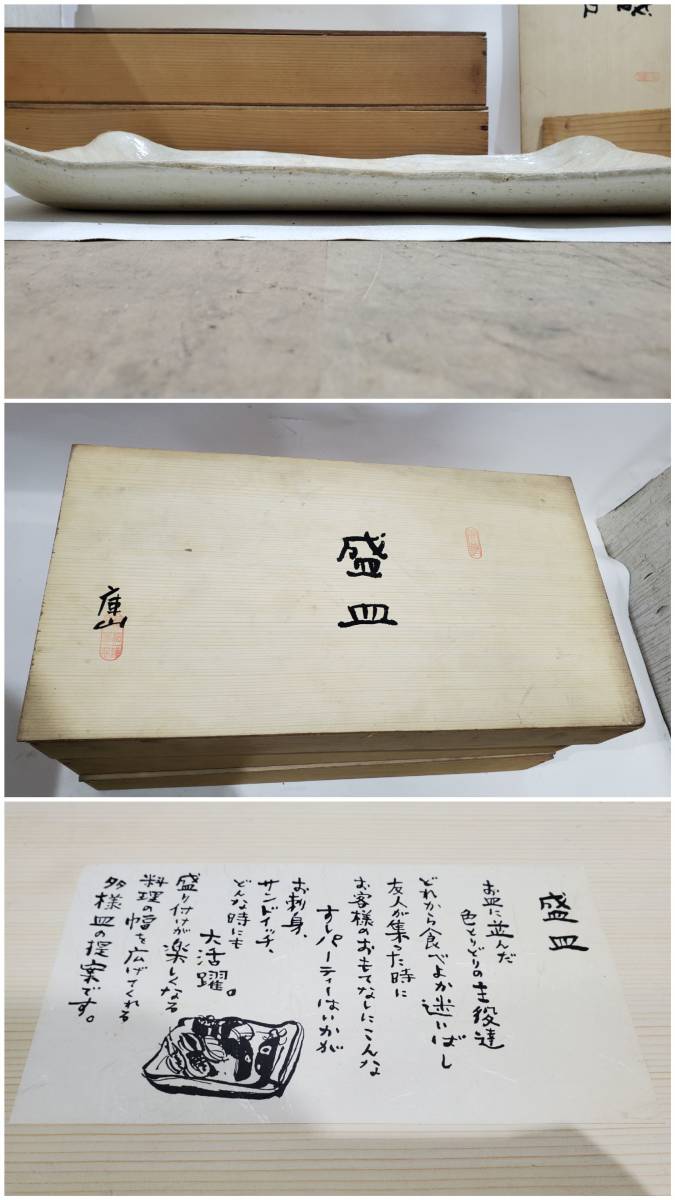 盛皿
庫山
盛皿
お皿に並んだ
色とりどりの主役達
どれから食べよか迷いばし
友人が集った時に
お客様のおもてなしにこんな
すしパーティーはいかが
お刺身、
サンドイッチ、
どんな時にも
大活躍。
盛り付けが楽しくなる
料理の幅を広げてくれる
多様皿の提案です。